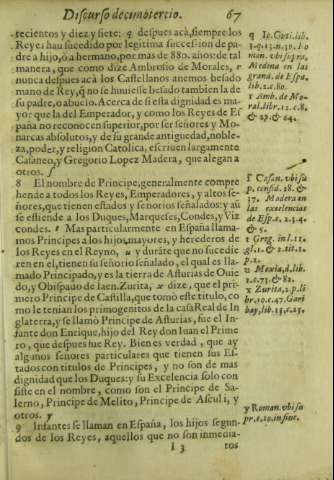 Discurso decimotercio. 67
tecientos y diez y siete: q despues acà, siempre los
Reyes hau sucedido por legitima succession de pa-
dre a hijo, ò a hermano, por mas de 880. años: de tal
manera, que como dize Ambrosio de Morales, r
nunca despues acà los Castellanos anemos besado
mano de Rey, q̃ no se huuiesse besado tambien la de
su padre, o abuelo. Acerca de si esta dignidad es ma-
yor que la del Emperador, y como los Reyes de Es
paña no reconocen superior, por ser señores y Mo-
narcas absolutos, y de su grande antiguedad, noble-
za, poder, y religion Catolica, escriuen largamente
Casaneo, y Gregorio Lopez Madera, que alegan a
otros. s
8 El nombre de Principe, generalmente compre
hende a todos los Reyes, Emperadores, y altos se-
ñores, que tienen estados y señorios señalados: y aũ
se estiende a los Duques, Marqueses, Condes, y Viz
condes. t Mas particularmente en España llama-
mos Principes a los hijos, mayores, y herederos de
los Reyes en el Reyno, u y durãte que no sucedie
ren en el, tienen su señorio señalado, el qual es lla-
mado Principado, y es la tierra de Asturias de Ouie
do, y Obispado de Iaen. Zurita, x dize, que el pri-
mero Principe de Castilla, que tomò este titulo, co
mo le tenian los primogenitos de la casa Real de In
glaterra, y se llamò Principe de Asturias, fue el In-
fante don Enrique, hijo del Rey don Iuan el Prime
ro, que despues fue Rey. Bien es verdad, que ay
algunos señores particulares que tienen sus Es-
tados con titulos de Principes, y no son de mas
dignidad que los Duques: y su Excelencia solo con
siste en el nombre, como son el Principe de Sa-
lerno, Principe de Melito, Principe de Asculi, y
otros. y
9 Infantes se llaman en España, los hijos segun-
dos de los Reyes, aquellos que no son inmedia-
I 3 tos
q Io. Goti. lib.
r Amb. de Mo-
ral. lib. 12. c. 8.
s Casan. vbi su
p. consid. 28. &
37. Madera en
las excelencias
de Esp. c. 2. 3. 4.
& 5.
t Greg. in l. 11.
u Mexia, d. lib.
2. c. 73. & 82.
x Zurita, 2. p. li
br. 10. c. 47. Gari
bay, lib. 15. c. 25.
y Roman. vbi su
pr. c. 10. in fine.